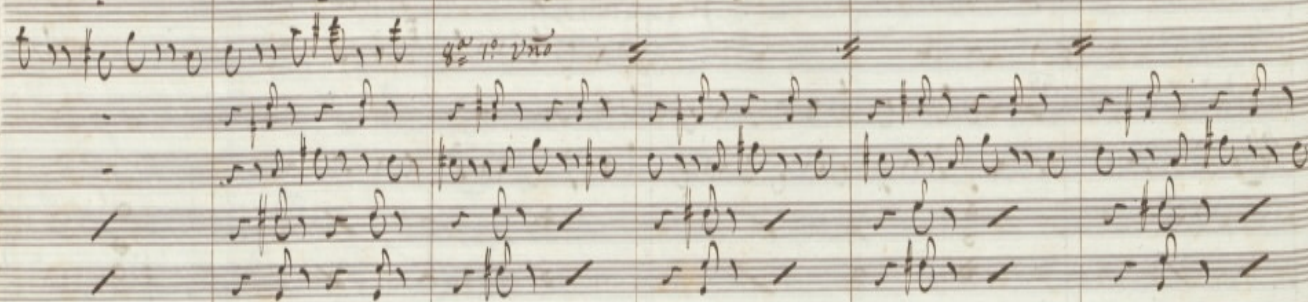 8ª 1º Vnº